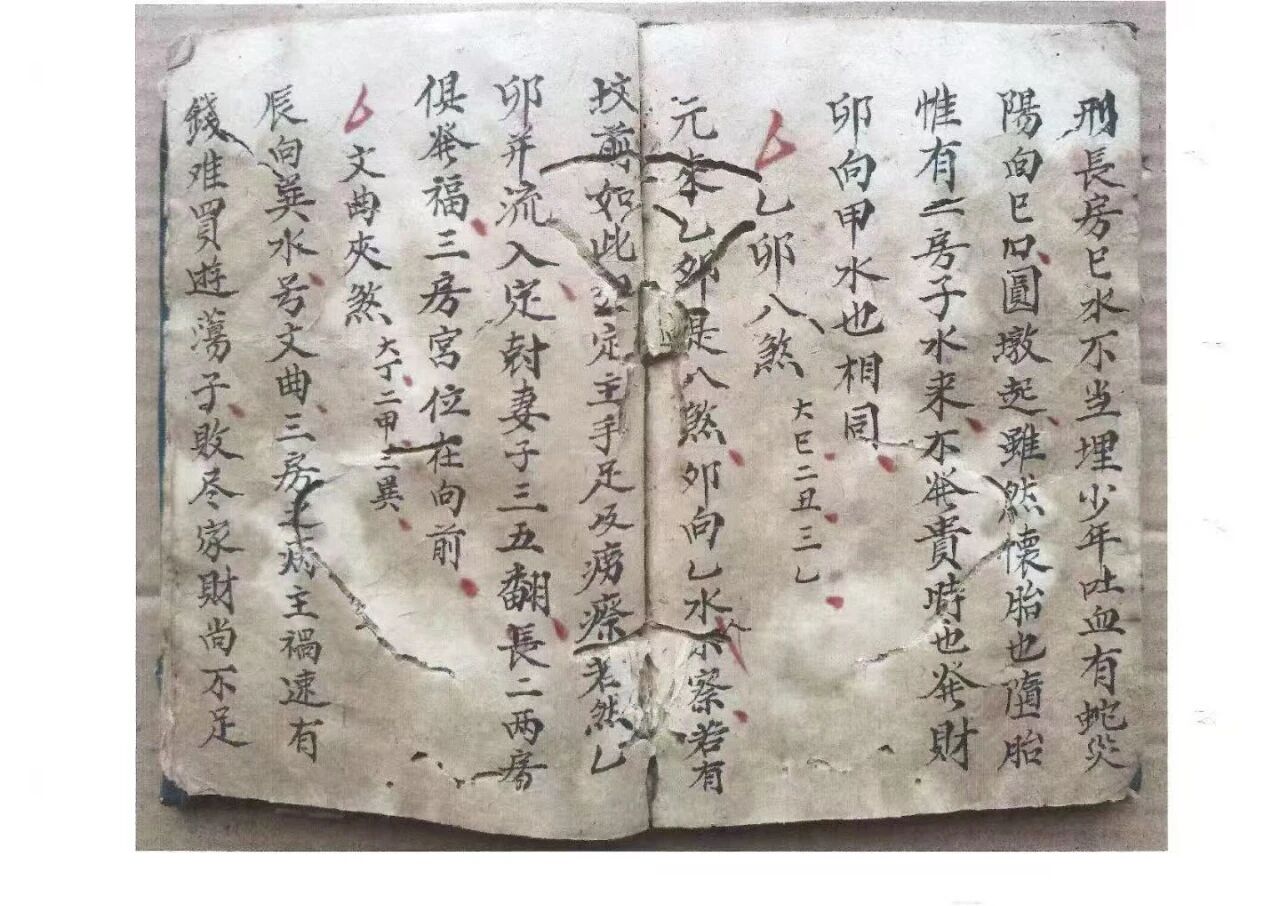 刑長房巳水不当埋少年吐血有蛇災
陽向巳口圓墩起雖然懷胎也墮胎
惟有二房子水来不發貴時也發財
卯向甲水也相同
乙卯八煞
大巳二丑三乙
元来乙卯是八煞卯向乙水察若有
坟前如此定主手足及痨瘵老然乙
卯并流入定尅妻子三五翻長二两房
俱發福三房宮位在向前
文曲夾煞
大丁二甲三巽
辰向巽水号文曲三房病主禍速有
錢难買遊蕩子敗尽家財尚不足